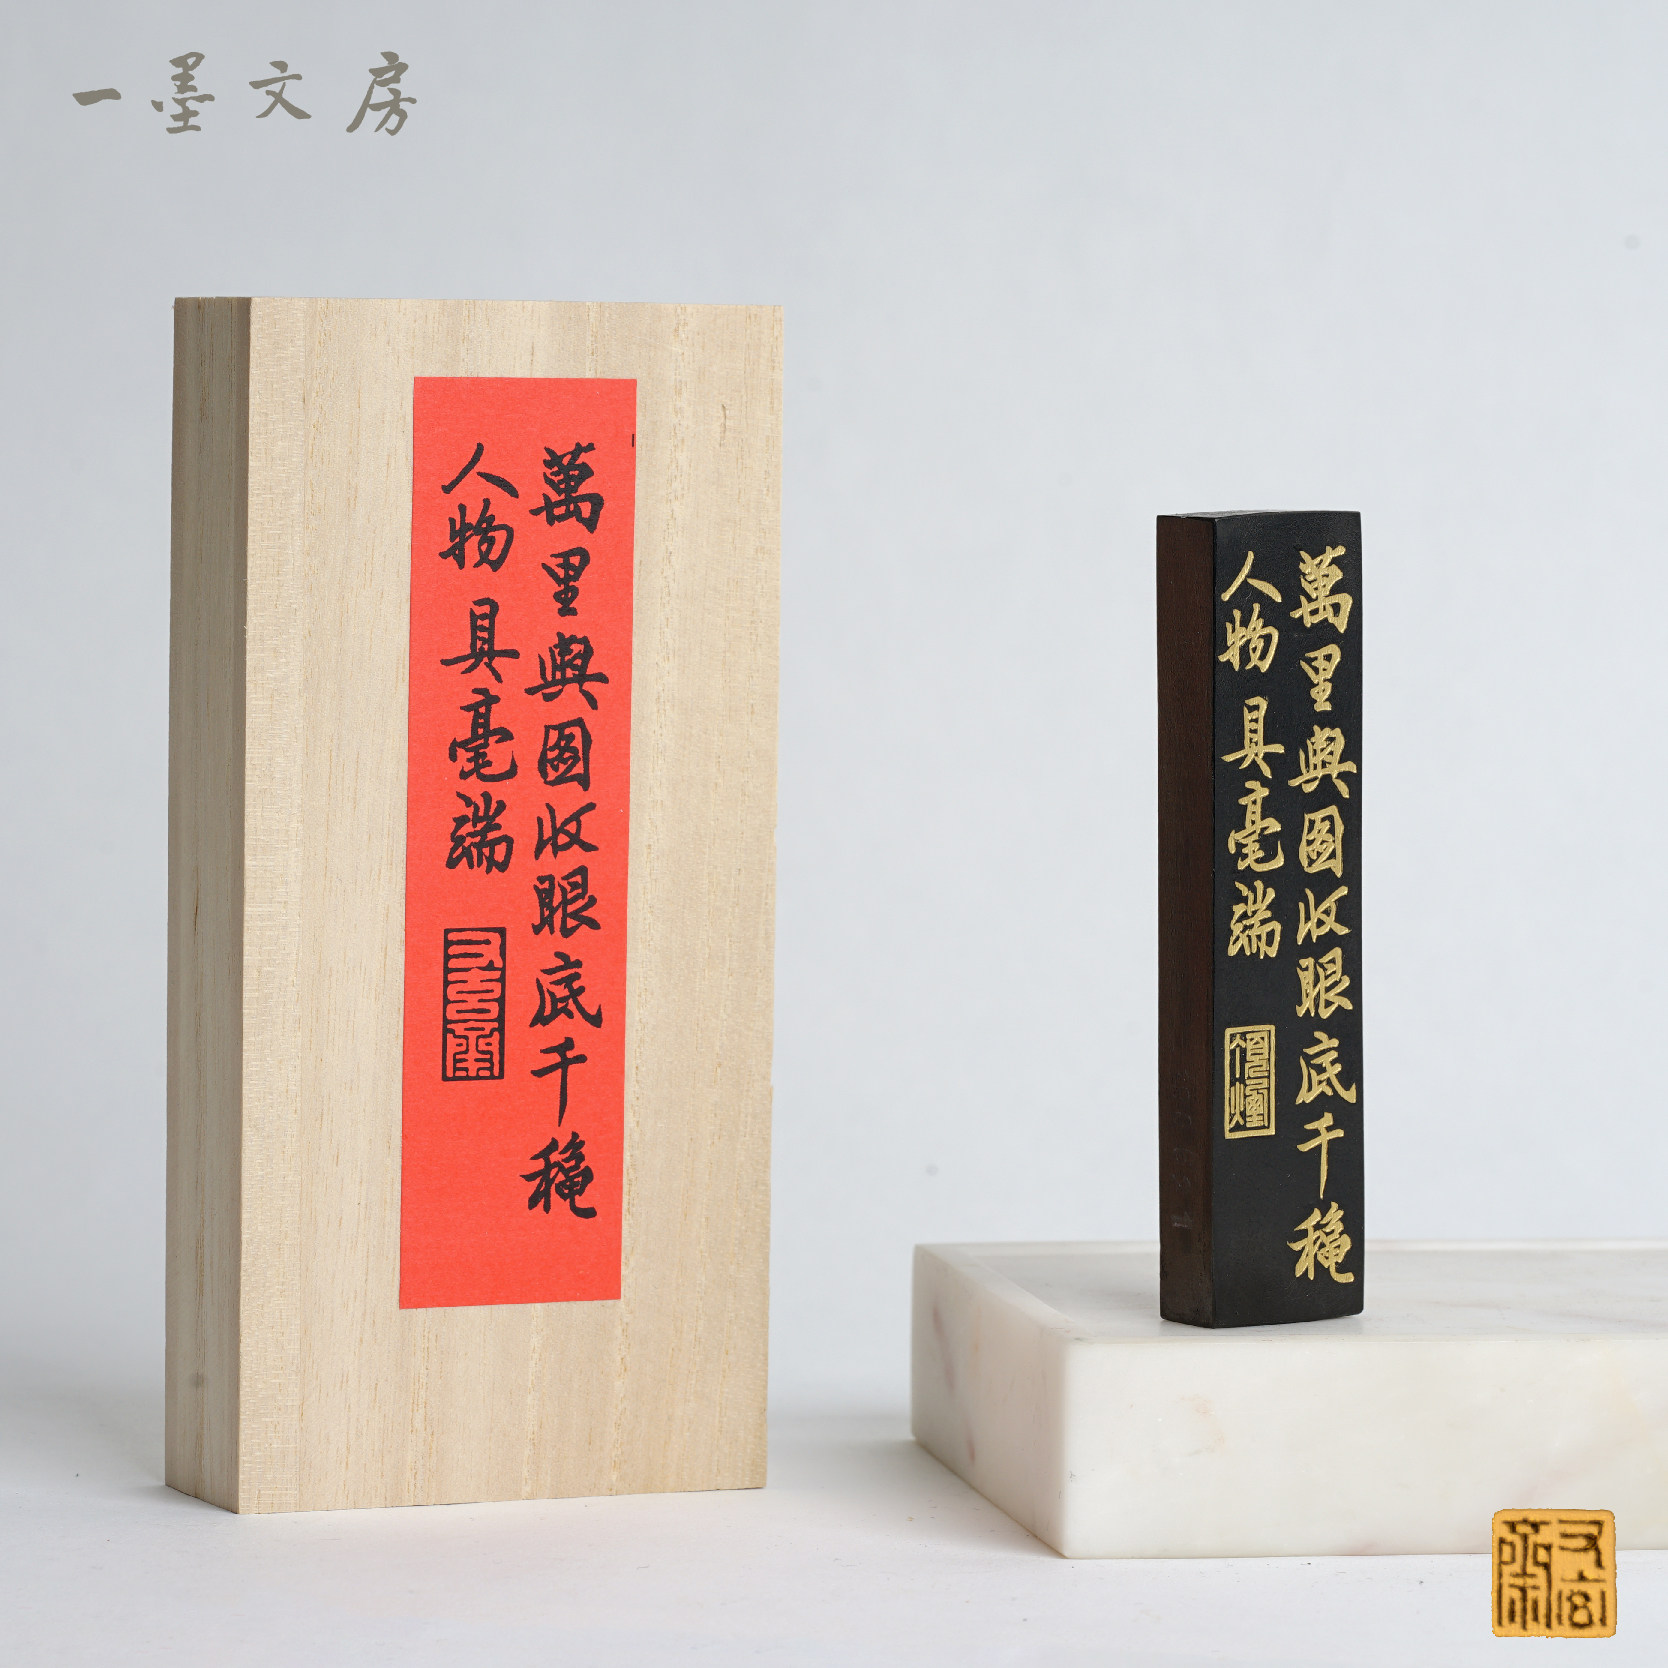 一墨文房
萬里輿圖收眼底千穐
人物具毫端
萬里輿圖收眼底千穐
人物具毫端